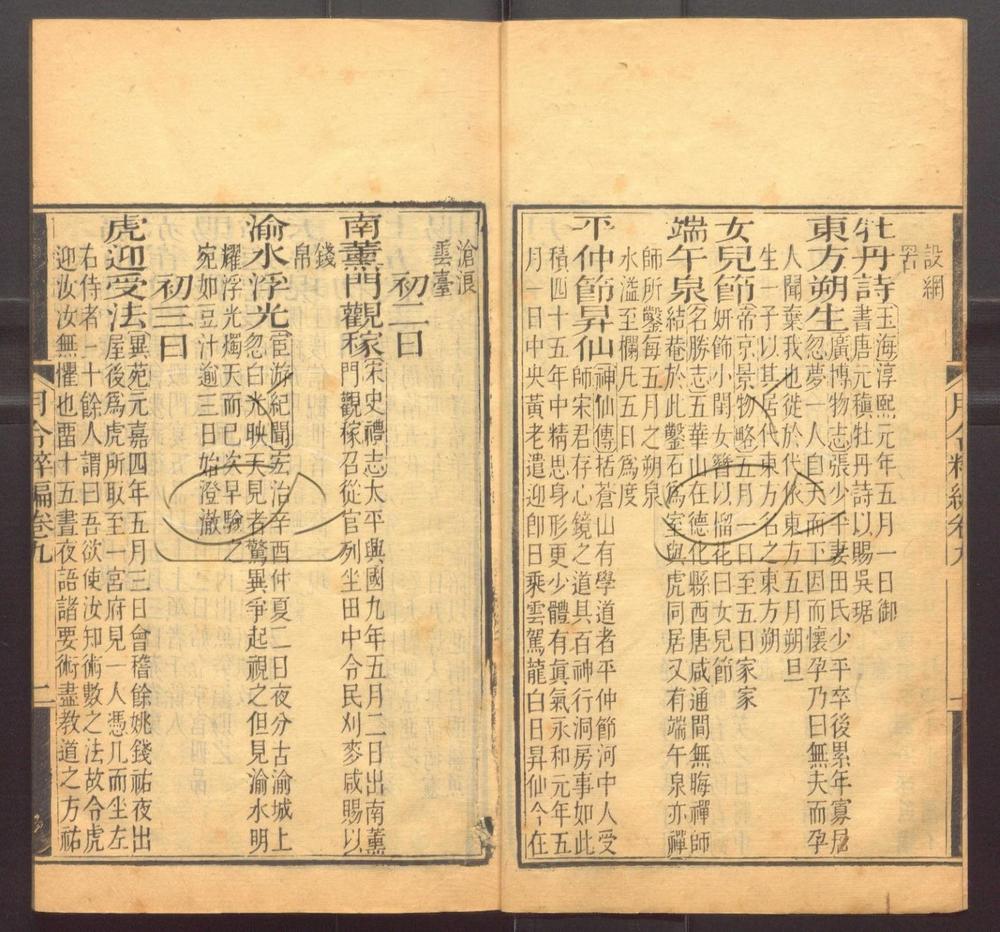 設網
罟
牡丹詩玉海淳熙元年五月一日御
書唐元稹牡丹詩以賜吳琚
東方朔生廣博物志張少平妻田氏少平卒後累年寡居
忽夢一人自天而下因而懷孕乃曰無夫而孕
人聞棄我也徙於代依東方五月朔旦
生一子以其居代東方名之東方朔
女兒節帝京景物略五月一日至五日家家
妍飾小閨女簪以榴花曰女兒節
端午泉名勝志五華山在德化縣西唐咸通間無晦禪師
結菴於此鑿石爲室與虎同居又有端午泉亦禪
師所鑿每五月之朔泉
水溢至欄凡五日爲度
平仲節昇仙神仙傳括蒼山有學道者平仲節河中人受
師宋君存心鏡之道具百神行洞房事如此
積四十五年中精思身形更少體有眞氣永和元年五
月一日中央黃老遣迎卽日乘雲駕龍白日昇仙今在
月令粹編卷九
一
滄浪
雲臺
初二日
南薰門觀稼宋史禮志太平興國九年五月二日出南薰
門觀稼召從官列坐田中令民刈麥咸賜以
錢
帛
渝水浮光宦游紀聞宏治辛酉仲夏二日夜分古渝城上
忽白光映天見者驚異爭起視之但見渝水明
耀浮光燭天而已次早驗之
宛如豆汁逾三日始澄澈
初三日
虎迎受法異苑元嘉四年五月三日會稽餘姚錢祐夜出
屋後爲虎所取至一宮府見一人憑几而坐左
右侍者二十餘人謂曰吾欲使汝知術數之法故令虎
迎汝汝無懼也畱十五晝夜語諸要術盡教道之方祐
月令粹編卷九
二